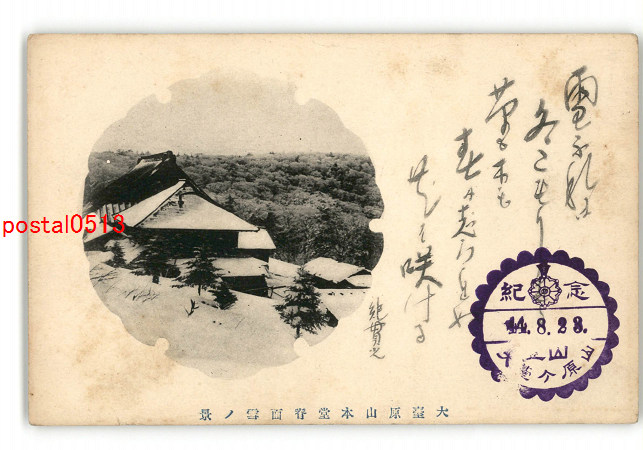 雪ふれは
冬こもりせる
草も木も
春に志られぬ
花そ咲ける
紀貫之
紀念
44.8.23.
大臺原山本堂脊面雪ノ景
postal0513